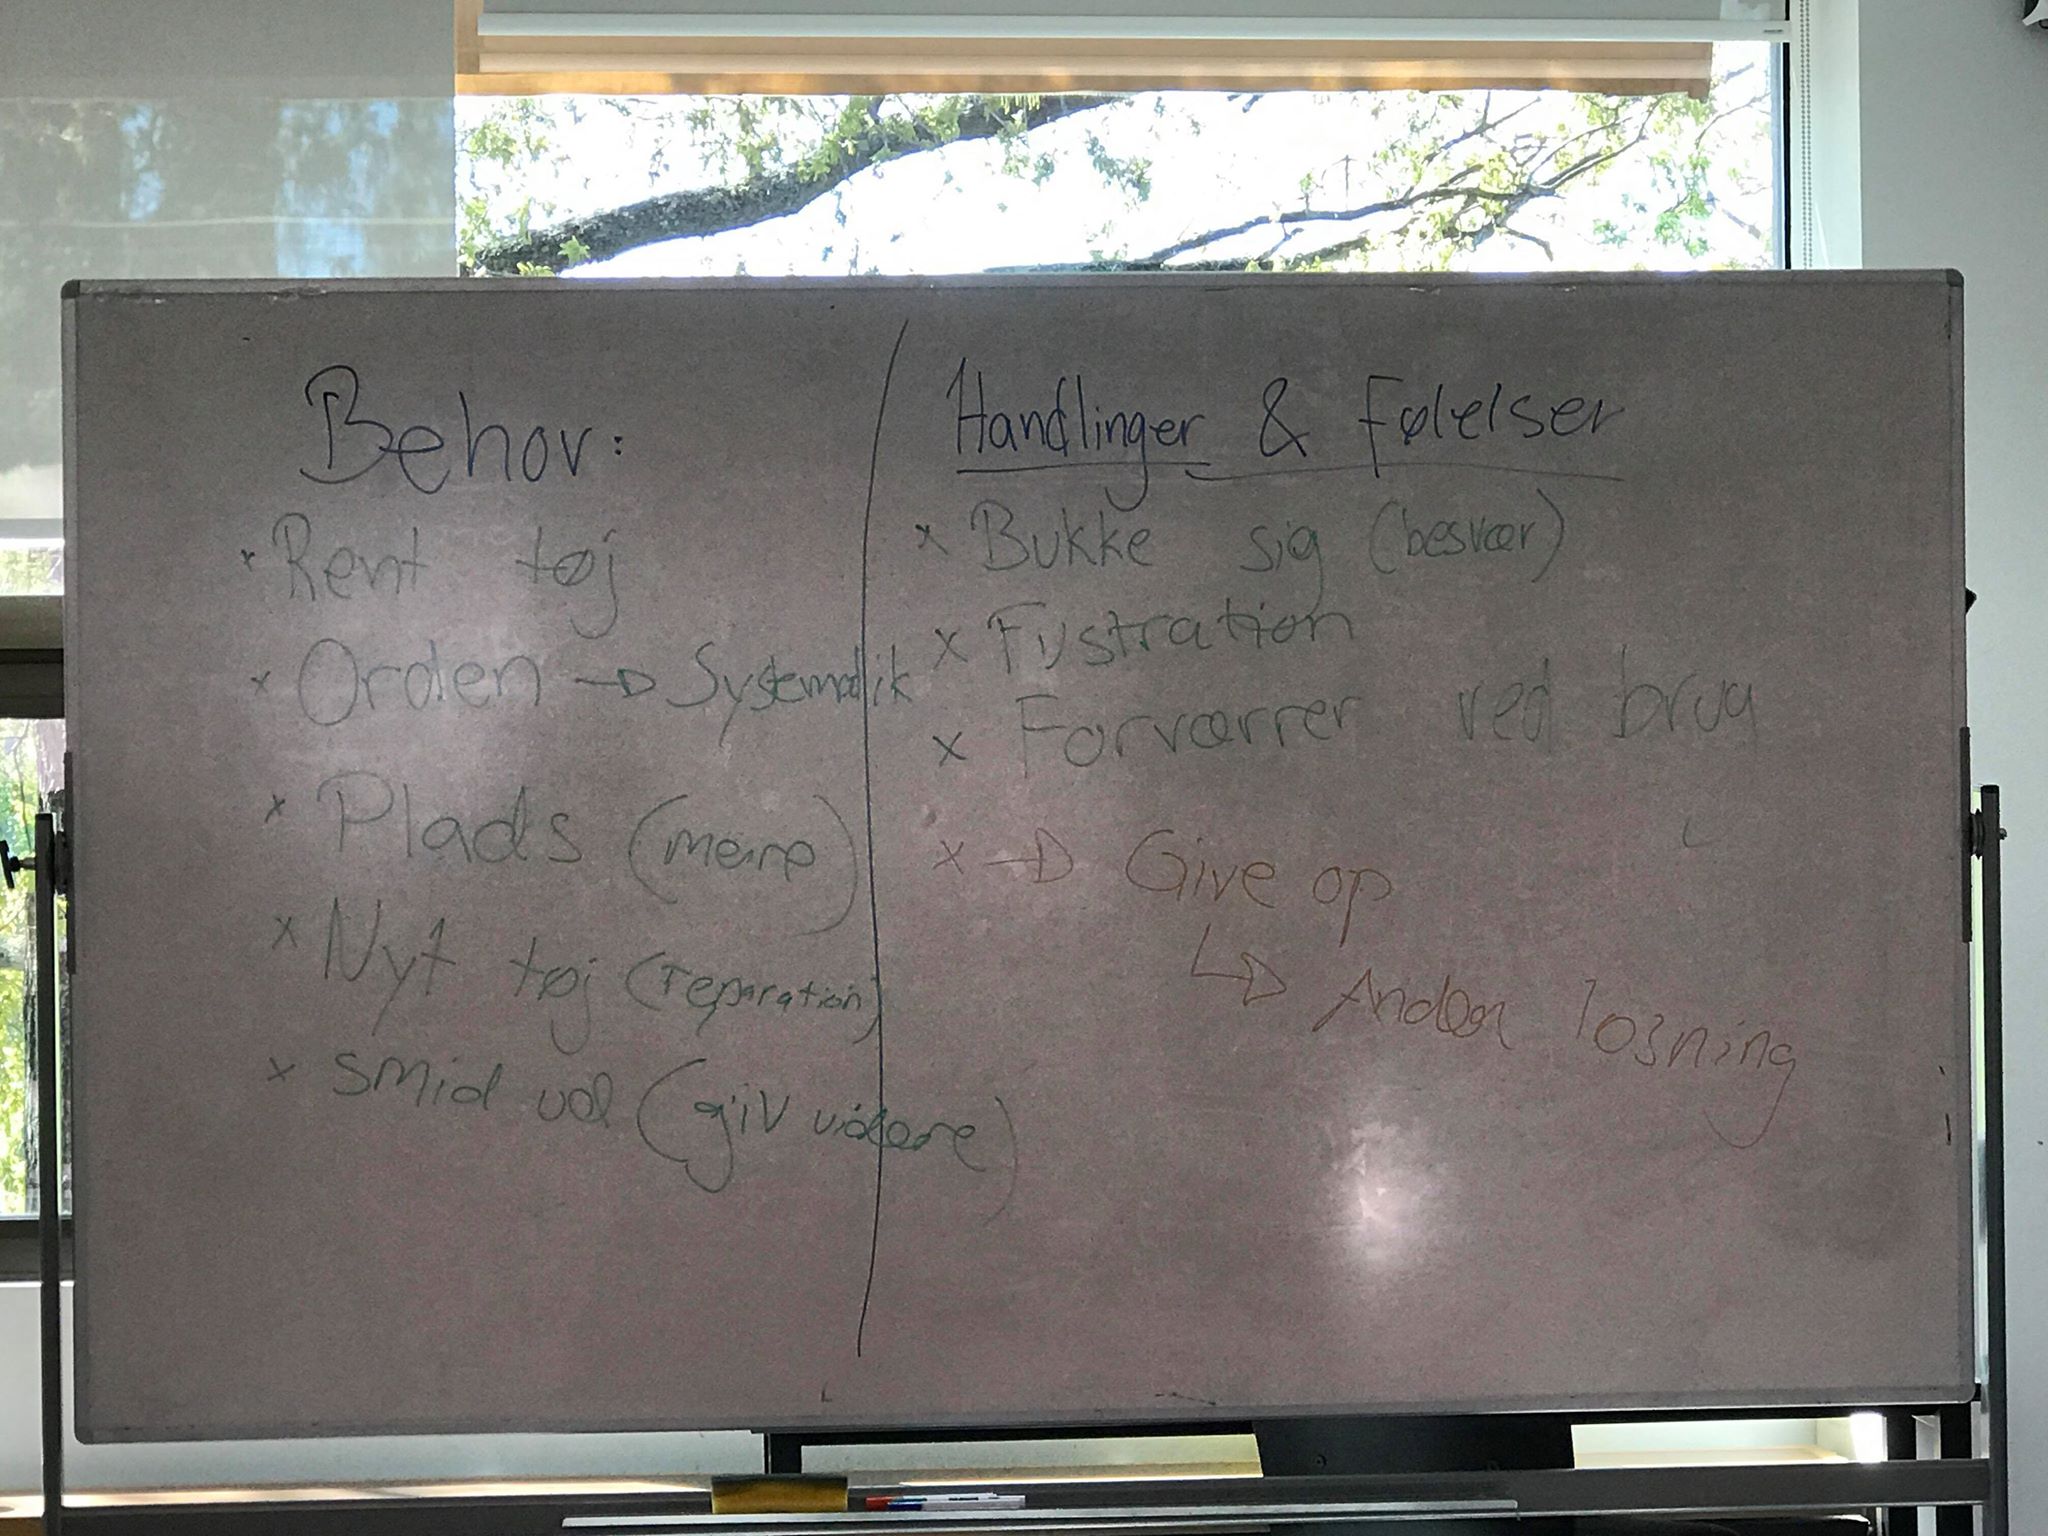 Behov:
× Rent tøj
× Orden → Systematik
× Plads (mere)
× Nyt tøj (reparation)
× smid ud (giv videre)
Handlinger & Følelser
× Bukke sig (besvær)
× Fustration
× Forværrer ved brug
× → Give op
↳ Anden løsning